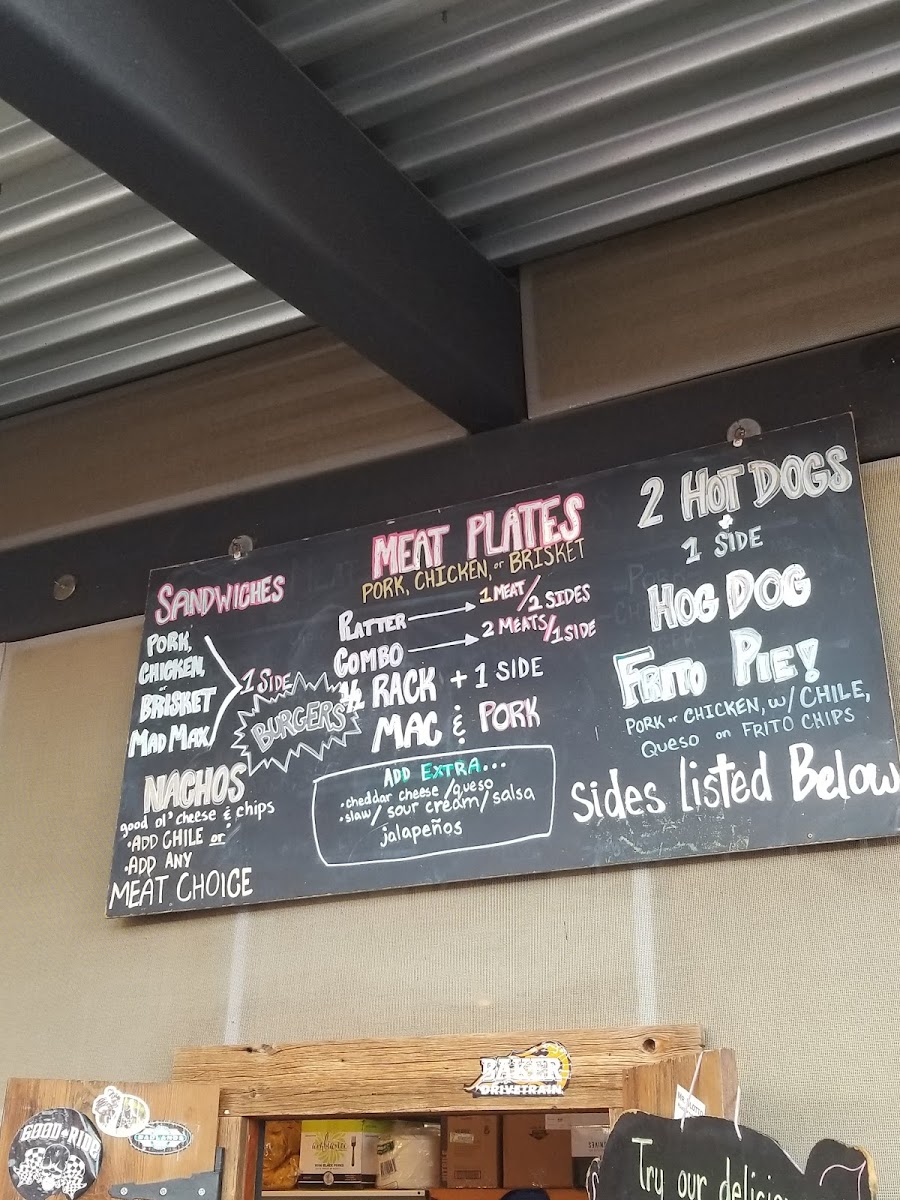 SANDWICHES
PORK,
CHICKEN,
or
BRISKET
MAD MAX
1 SIDE
BURGERS
NACHOS
good ol' cheese & chips
•ADD CHILE or
•ADD ANY
MEAT CHOICE
MEAT PLATES
PORK, CHICKEN, or BRISKET
PLATTER → 1 MEAT/2 SIDES
COMBO → 2 MEATS/1 SIDE
½ RACK + 1 SIDE
MAC & PORK
ADD EXTRA...
•cheddar cheese/queso
•slaw/sour cream/salsa
jalapeños
2 HOT DOGS
+
1 SIDE
HOG DOG
FRITO PIE!
PORK or CHICKEN, w/ CHILE,
QUESO on FRITO CHIPS
Sides listed Below
BAKER
DRIVETRAIN
GOOD RIDE
Try our delicio